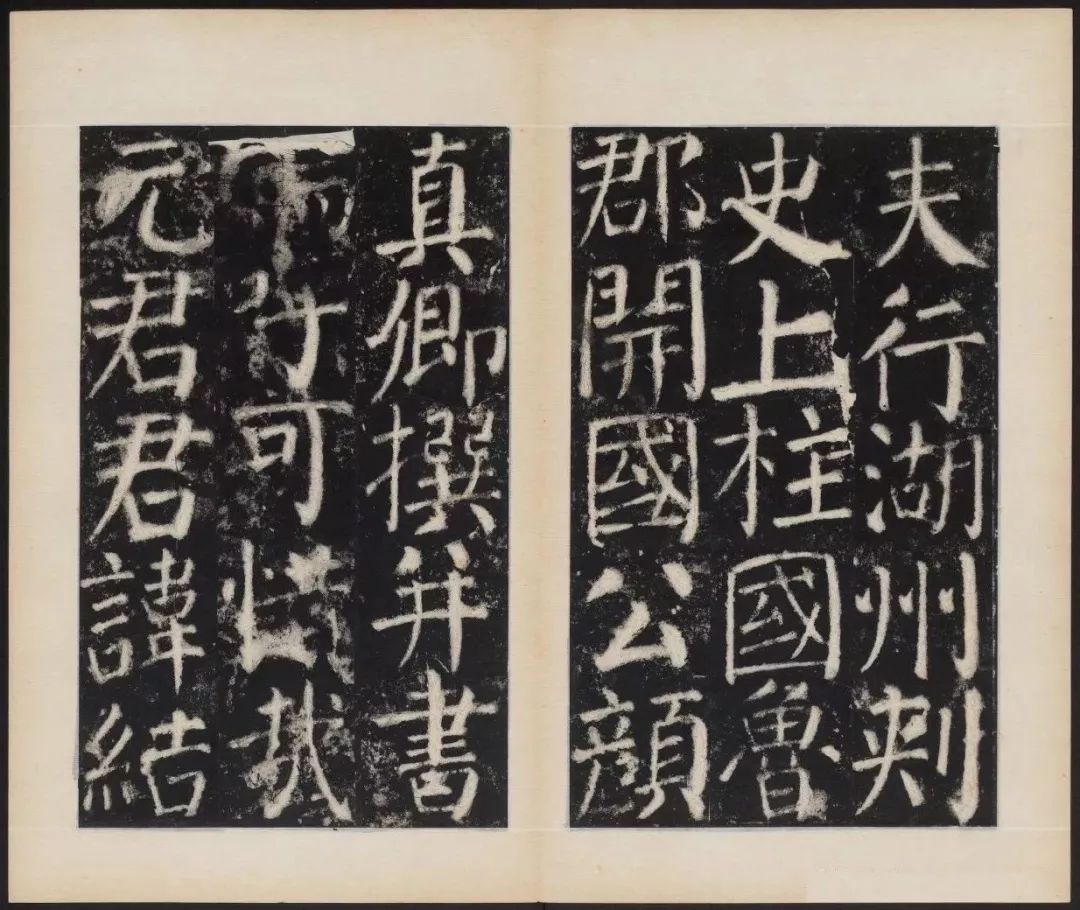 夫行湖州刺
史上柱國魯
郡開國公顏
真卿撰并書
呼可惜哉
元君君諱結